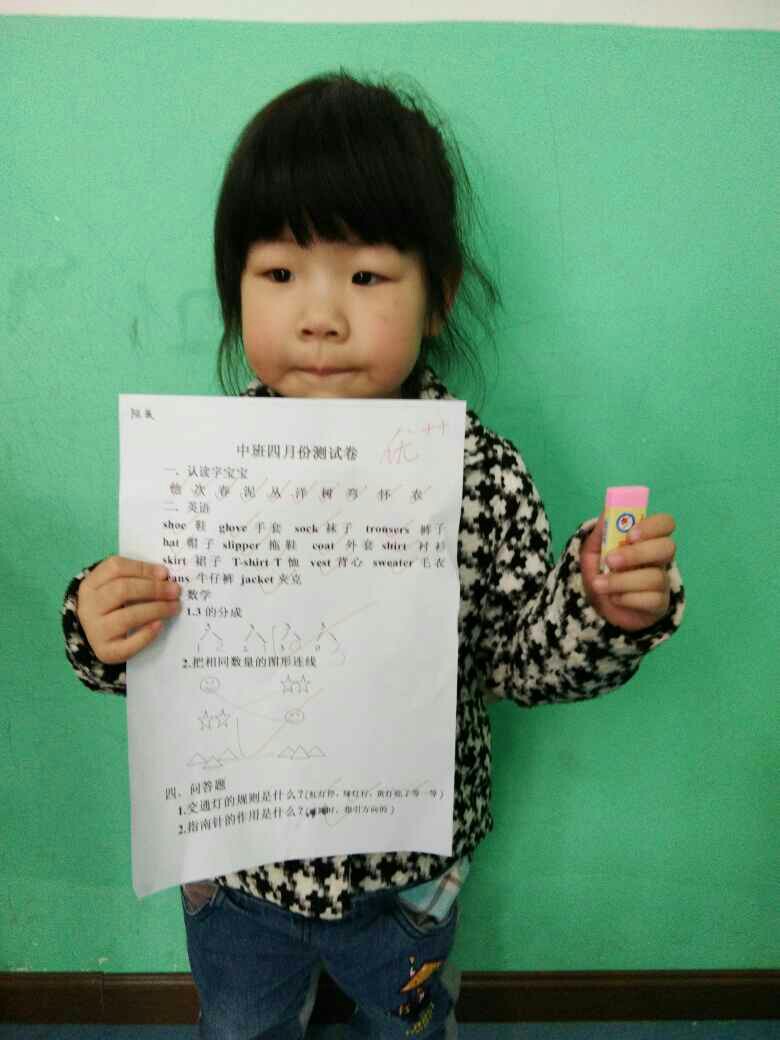 优++
中班四月份测试卷
一、认读字宝宝
他 次 春 泥 丛 洋 树 弯 怀 衣
二、英语
shoe 鞋 glove 手套 sock 袜子 trousers 裤子
hat 帽子 slipper 拖鞋 coat 外套 shirt 衬衫
skirt 裙子 T-shirt T恤 vest 背心 sweater 毛衣
jeans 牛仔裤 jacket 夹克
数学
1.3的分成
2.把相同数量的图形连线
四、问答题
1.交通灯的规则是什么？(红灯停，绿灯行，黄灯亮了等一等)
2.指南针的作用是什么？( 指引方向的)